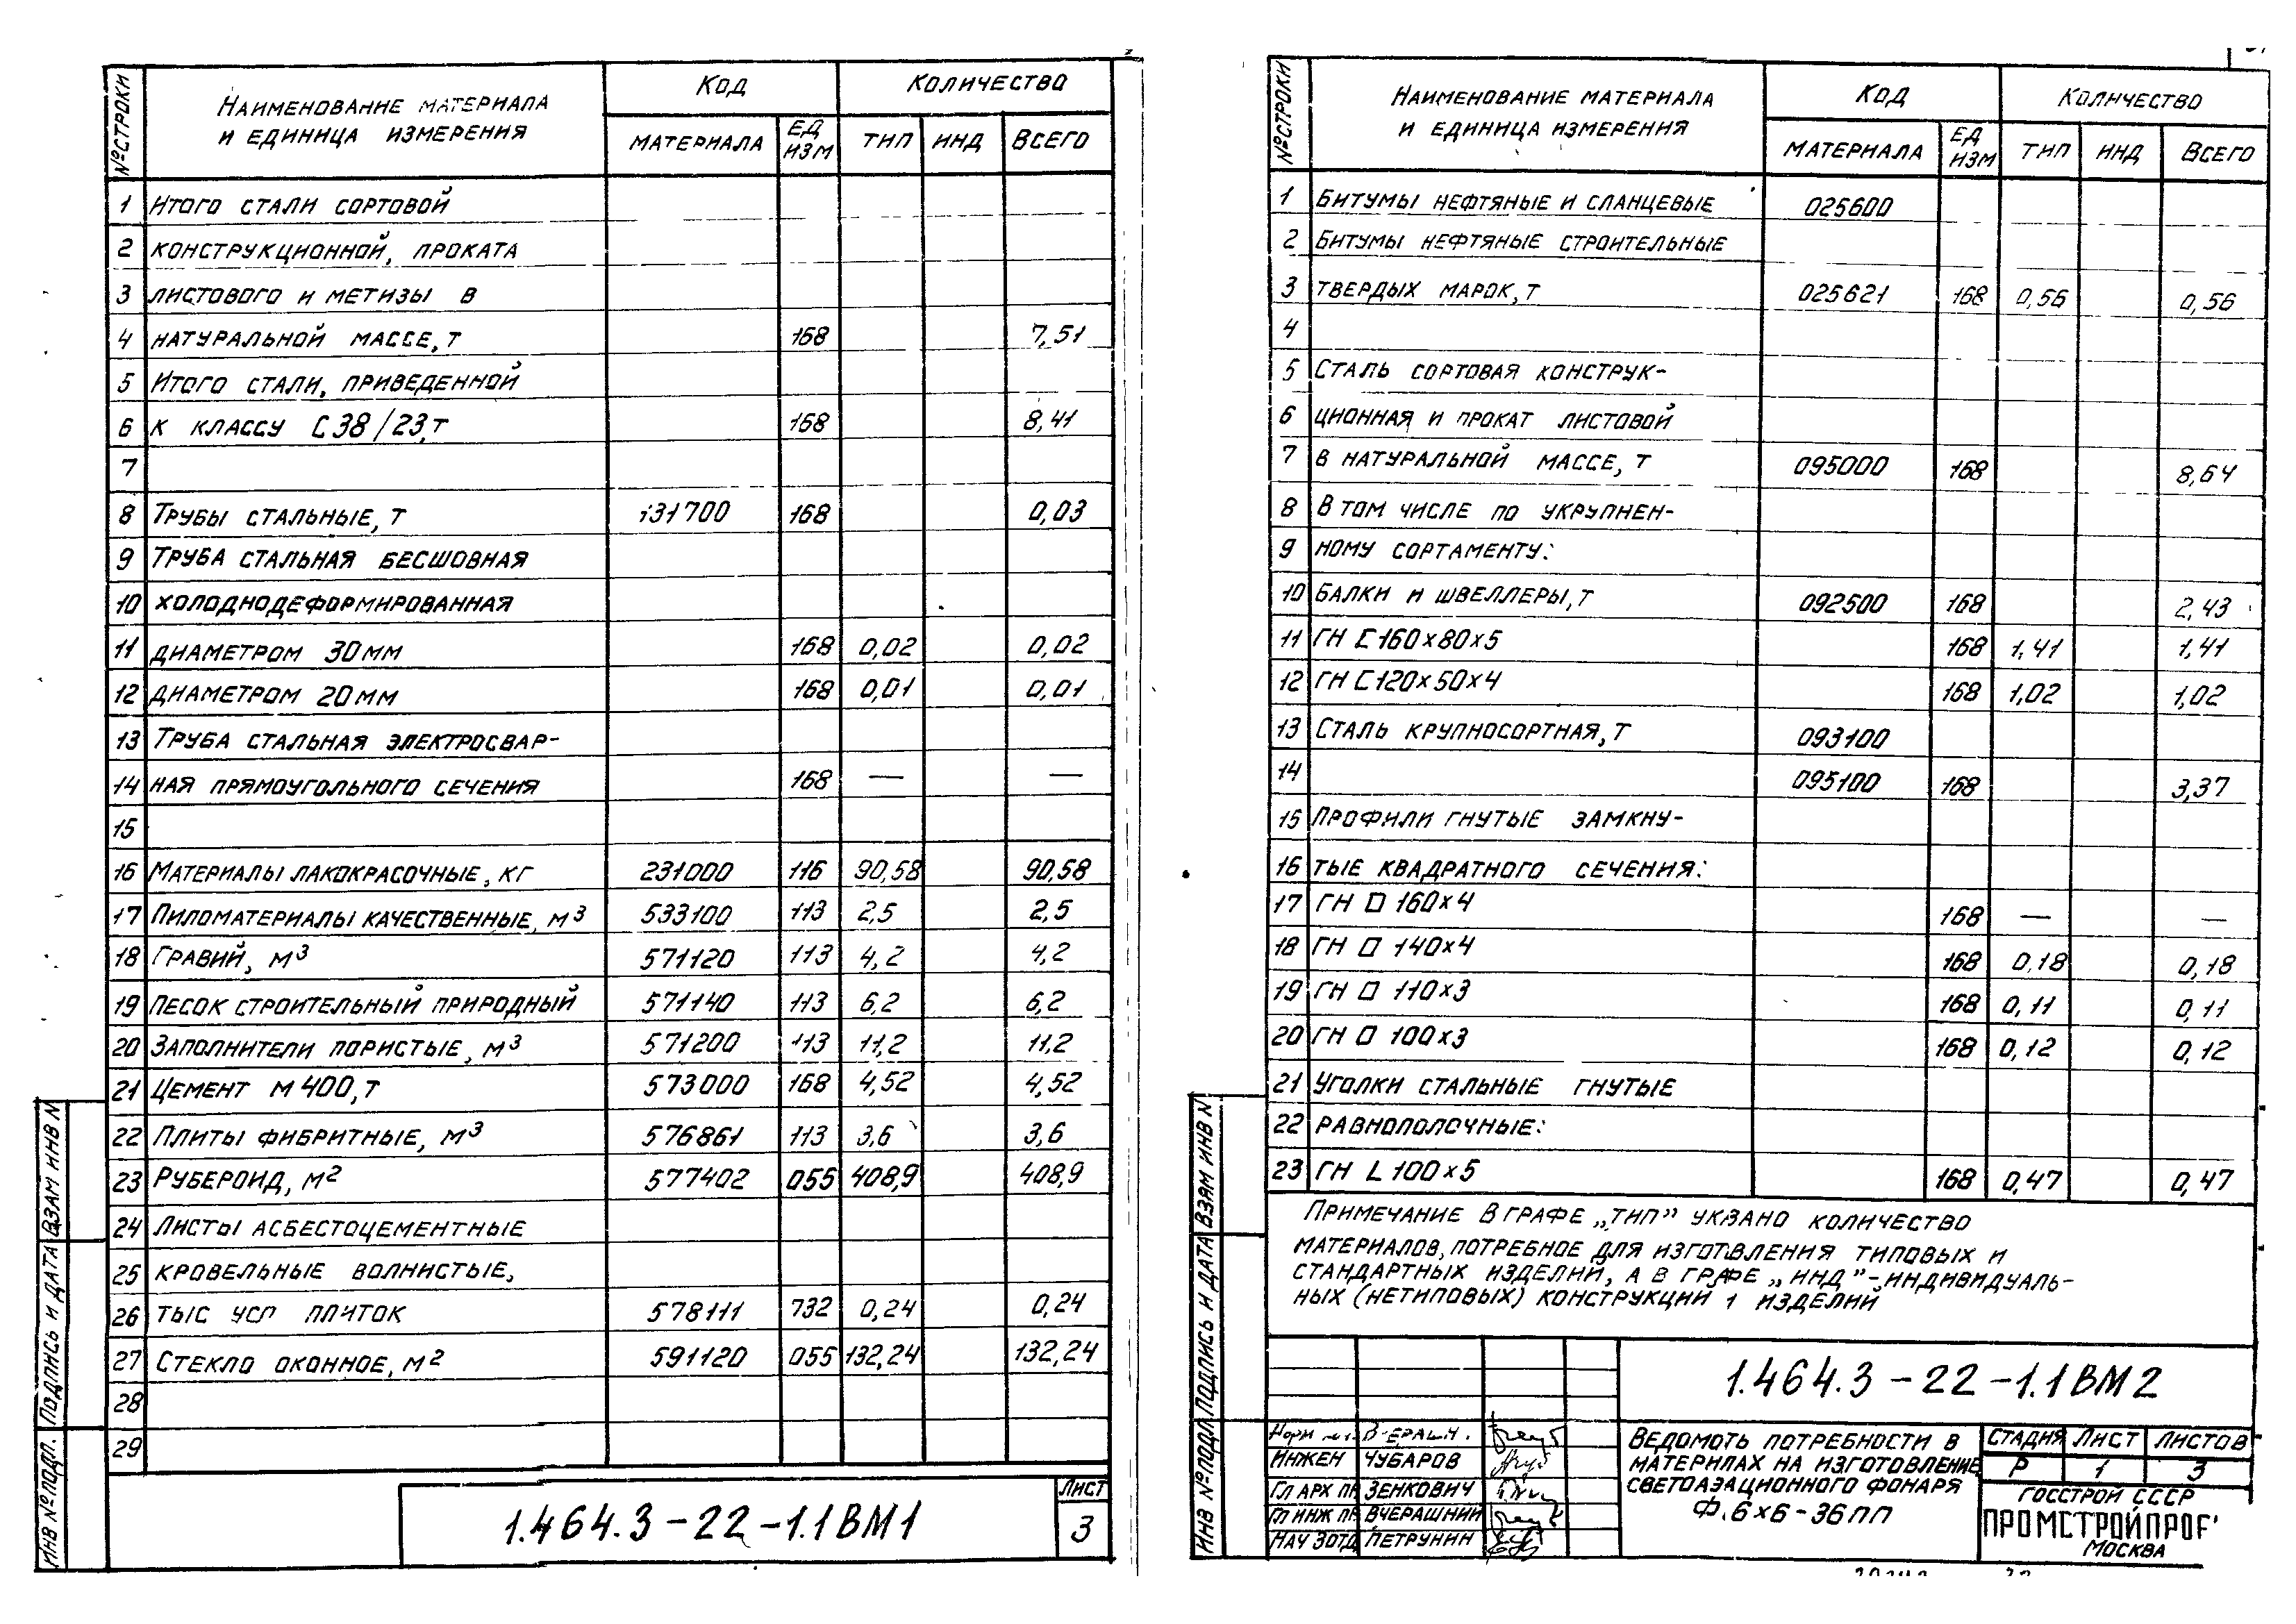 № СТРОКИ
НАИМЕНОВАНИЕ МАТЕРИАЛА
И ЕДИНИЦА ИЗМЕРЕНИЯ
КОД
КОЛИЧЕСТВО
МАТЕРИАЛА ЕД ИЗМ ТИП ИНД ВСЕГО
1 ИТОГО СТАЛИ СОРТОВОЙ
2 КОНСТРУКЦИОННОЙ, ПРОКАТА
3 ЛИСТОВОГО И МЕТИЗЫ В
4 НАТУРАЛЬНОЙ МАССЕ, Т 168 7,51
5 ИТОГО СТАЛИ, ПРИВЕДЕННОЙ
6 К КЛАССУ С 38/23, Т 168 8,41
7
8 ТРУБЫ СТАЛЬНЫЕ, Т 131700 168 0,03
9 ТРУБА СТАЛЬНАЯ БЕСШОВНАЯ
10 ХОЛОДНОДЕФОРМИРОВАННАЯ
11 ДИАМЕТРОМ 30 ММ 168 0,02 0,02
12 ДИАМЕТРОМ 20 ММ 168 0,01 0,01
13 ТРУБА СТАЛЬНАЯ ЭЛЕКТРОСВАР-
14 НАЯ ПРЯМОУГОЛЬНОГО СЕЧЕНИЯ 168 — —
15
16 МАТЕРИАЛЫ ЛАКОКРАСОЧНЫЕ, КГ 231000 116 90,58 90,58
17 ПИЛОМАТЕРИАЛЫ КАЧЕСТВЕННЫЕ, М³ 533100 113 2,5 2,5
18 ГРАВИЙ, М³ 571120 113 4,2 4,2
19 ПЕСОК СТРОИТЕЛЬНЫЙ ПРИРОДНЫЙ 571140 113 6,2 6,2
20 ЗАПОЛНИТЕЛИ ПОРИСТЫЕ, М³ 571200 113 11,2 11,2
21 ЦЕМЕНТ М 400, Т 573000 168 4,52 4,52
22 ПЛИТЫ ФИБРИТНЫЕ, М³ 576861 113 3,6 3,6
23 РУБЕРОИД, М² 577402 055 408,9 408,9
24 ЛИСТЫ АСБЕСТОЦЕМЕНТНЫЕ
25 КРОВЕЛЬНЫЕ ВОЛНИСТЫЕ,
26 ТЫС УСЛ ПЛИТОК 578111 732 0,24 0,24
27 СТЕКЛО ОКОННОЕ, М² 591120 055 132,24 132,24
28
29
ИНВ № ПОДЛ. ПОДПИСЬ И ДАТА ВЗАМ ИНВ N
1.464.3-22-1.1 ВМ1
ЛИСТ
3
№ СТРОКИ
НАИМЕНОВАНИЕ МАТЕРИАЛА
И ЕДИНИЦА ИЗМЕРЕНИЯ
КОД
КОЛИЧЕСТВО
МАТЕРИАЛА ЕД ИЗМ ТИП ИНД ВСЕГО
1 БИТУМЫ НЕФТЯНЫЕ И СЛАНЦЕВЫЕ 025600
2 БИТУМЫ НЕФТЯНЫЕ СТРОИТЕЛЬНЫЕ
3 ТВЕРДЫХ МАРОК, Т 025621 168 0,56 0,56
4
5 СТАЛЬ СОРТОВАЯ КОНСТРУК-
6 ЦИОННАЯ И ПРОКАТ ЛИСТОВОЙ
7 В НАТУРАЛЬНОЙ МАССЕ, Т 095000 168 8,64
8 В ТОМ ЧИСЛЕ ПО УКРУПНЕН-
9 НОМУ СОРТАМЕНТУ:
10 БАЛКИ И ШВЕЛЛЕРЫ, Т 092500 168 2,43
11 ГН [ 160×80×5 168 1,41 1,41
12 ГН [ 120×50×4 168 1,02 1,02
13 СТАЛЬ КРУПНОСОРТНАЯ, Т 093100
14 095100 168 3,37
15 ПРОФИЛИ ГНУТЫЕ ЗАМКНУ-
16 ТЫЕ КВАДРАТНОГО СЕЧЕНИЯ:
17 ГН □ 160×4 168 — —
18 ГН □ 140×4 168 0,18 0,18
19 ГН □ 110×3 168 0,11 0,11
20 ГН □ 100×3 168 0,12 0,12
21 УГОЛКИ СТАЛЬНЫЕ ГНУТЫЕ
22 РАВНОПОЛОЧНЫЕ:
23 ГН L 100×5 168 0,47 0,47
ПРИМЕЧАНИЕ В ГРАФЕ „ТИП” УКАЗАНО КОЛИЧЕСТВО
МАТЕРИАЛОВ, ПОТРЕБНОЕ ДЛЯ ИЗГОТВЛЕНИЯ ТИПОВЫХ И
СТАНДАРТНЫХ ИЗДЕЛИЙ, А В ГРАФЕ „ИНД”-ИНДИВИДУАЛЬ-
НЫХ (НЕТИПОВЫХ) КОНСТРУКЦИЙ И ИЗДЕЛИЙ
ИНВ № ПОДЛ ПОДПИСЬ И ДАТА ВЗАМ ИНВ N
1.464.3-22-1.1 ВМ2
ИНЖЕН ЧУБАРОВ
ГЛ АРХ ПР ЗЕНКОВИЧ
ГЛ ИНЖ ПР ВЧЕРАШНИЙ
НАЧ ЗОТД ПЕТРУНИН
ВЕДОМОТЬ ПОТРЕБНОСТИ В
МАТЕРИЛАХ НА ИЗГОТОВЛЕНИЕ
СВЕТОАЭАЦИОННОГО ФОНАРЯ
Ф. 6×6-36 ПП
СТАДИЯ ЛИСТ ЛИСТОВ
Р 1 3
ГОССТРОЙ СССР
МОСКВА